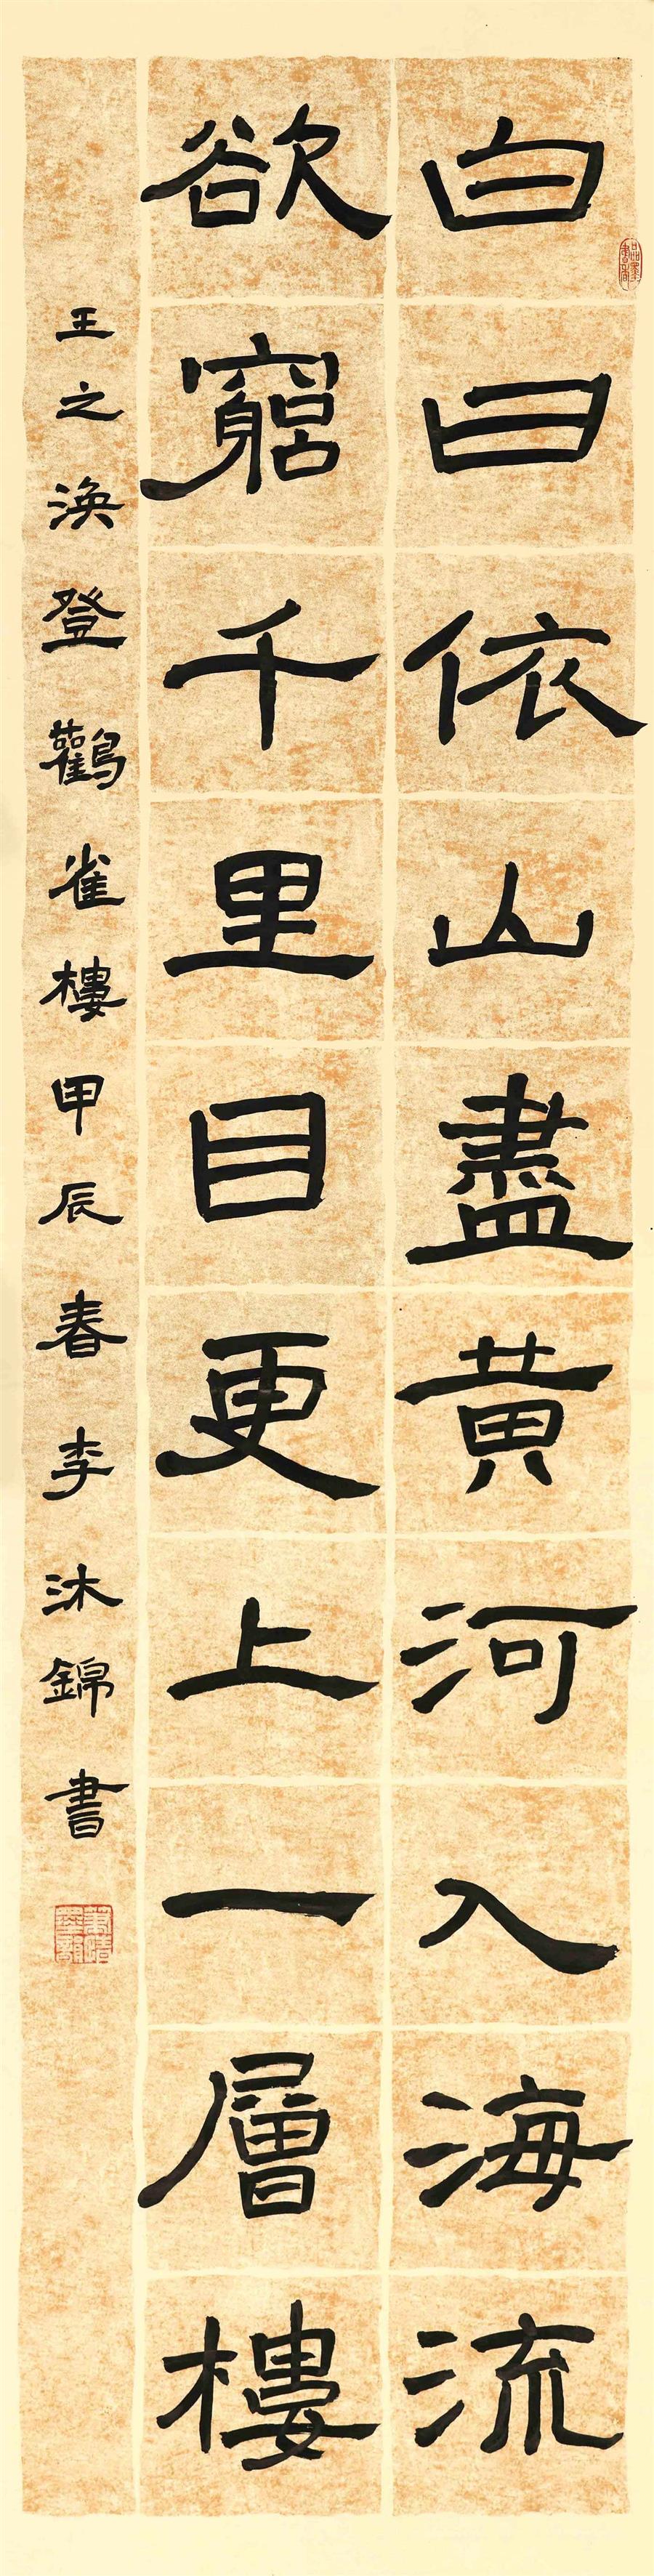 白日依山盡黄河入海流
欲窮千里目更上一層樓
王之渙登鸛雀樓甲辰春李沐錦書